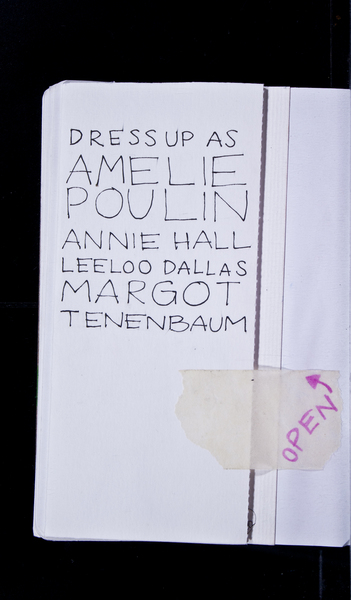 DRESS UP AS
AMELIE
POULIN
ANNIE HALL
LEELOO DALLAS
MARGOT
TENENBAUM
OPEN